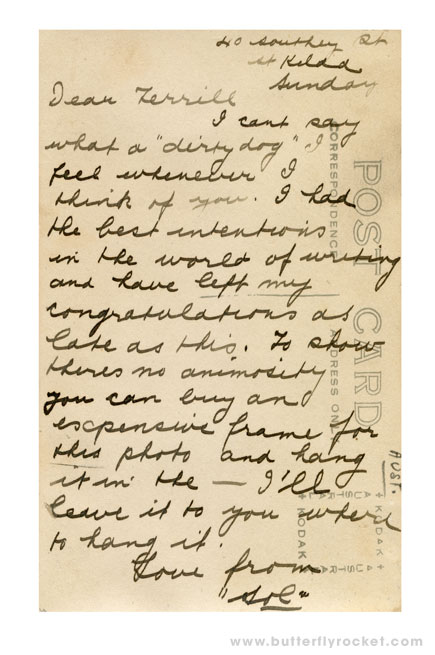 40 Southey St
St Kilda
Sunday
Dear Terrill
I cant say
what a "dirty dog" I
feel whenever I
think of you. I had
the best intentions
in the world of writing
and have left my
congratulations as
late as this. To show
theres no animosity
you can buy an
expensive frame for
this photo and hang
it in the — I'll
leave it to you where
to hang it.
Love from
"Sol"
POST CARD
CORRESPONDENCE
ADDRESS ONLY
AUST.
KODAK
AUSTRAL
KODAK
www.butterflyrocket.com